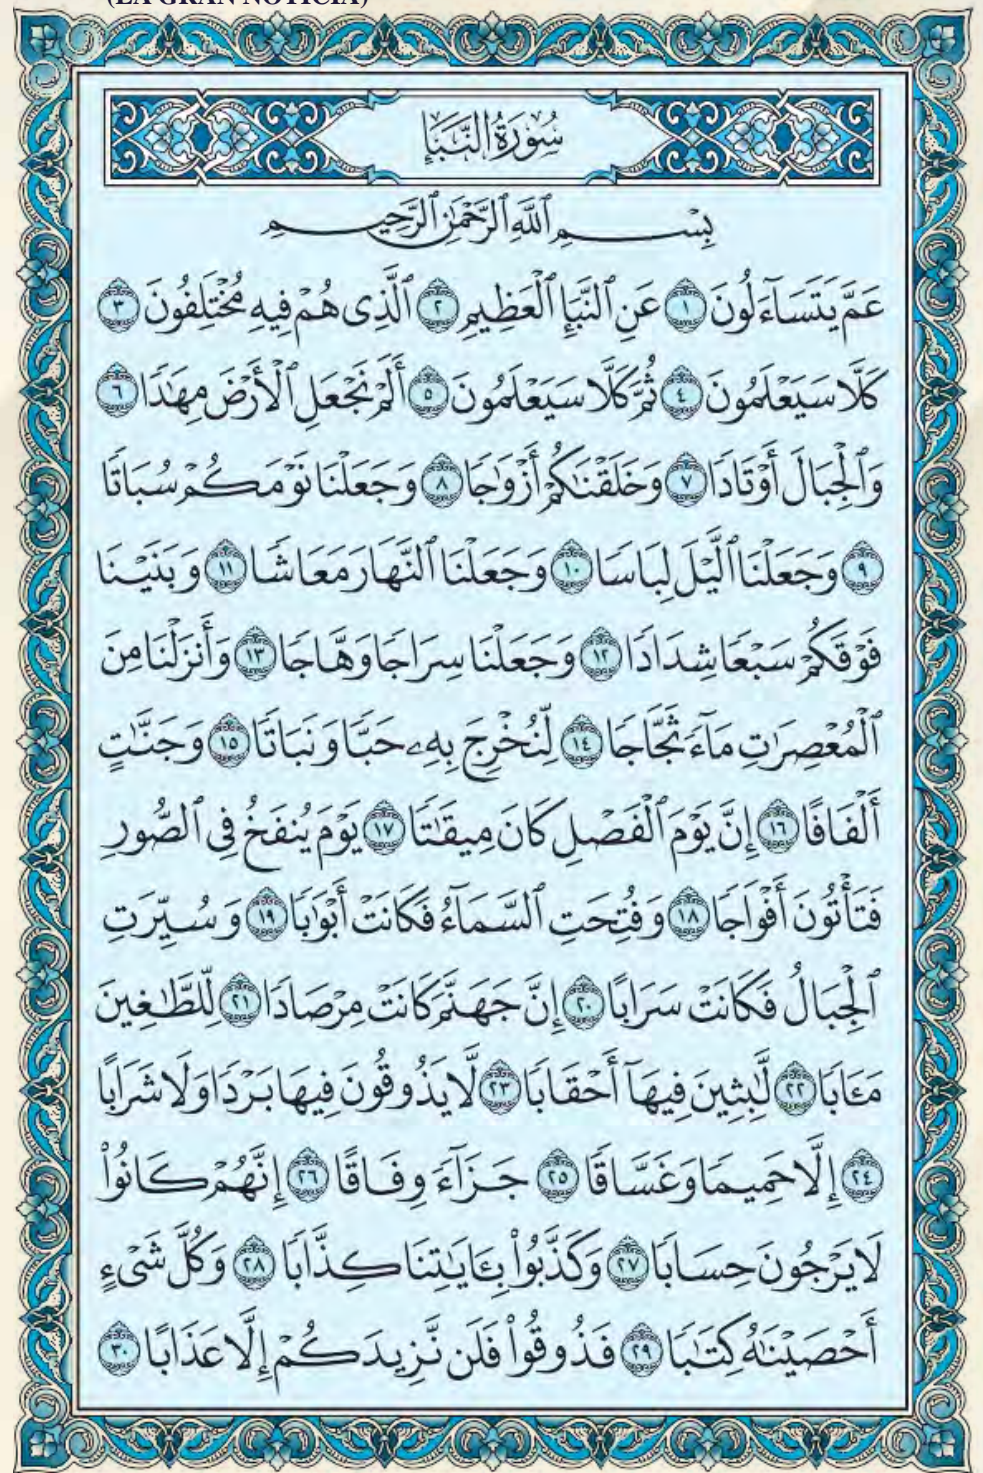 (LA GRAN NOTICIA)
سُورَةُ النَّبَإِ
بِسْمِ ٱللَّهِ ٱلرَّحْمَٰنِ ٱلرَّحِيمِ
عَمَّ يَتَسَآءَلُونَ ١ عَنِ ٱلنَّبَإِ ٱلْعَظِيمِ ٢ ٱلَّذِى هُمْ فِيهِ مُخْتَلِفُونَ ٣
كَلَّا سَيَعْلَمُونَ ٤ ثُمَّ كَلَّا سَيَعْلَمُونَ ٥ أَلَمْ نَجْعَلِ ٱلْأَرْضَ مِهَٰدًا ٦
وَٱلْجِبَالَ أَوْتَادًا ٧ وَخَلَقْنَٰكُمْ أَزْوَٰجًا ٨ وَجَعَلْنَا نَوْمَكُمْ سُبَاتًا
٩ وَجَعَلْنَا ٱلَّيْلَ لِبَاسًا ١٠ وَجَعَلْنَا ٱلنَّهَارَ مَعَاشًا ١١ وَبَنَيْنَا
فَوْقَكُمْ سَبْعًا شِدَادًا ١٢ وَجَعَلْنَا سِرَاجًا وَهَّاجًا ١٣ وَأَنزَلْنَا مِنَ
ٱلْمُعْصِرَٰتِ مَآءً ثَجَّاجًا ١٤ لِّنُخْرِجَ بِهِۦ حَبًّا وَنَبَاتًا ١٥ وَجَنَّٰتٍ
أَلْفَافًا ١٦ إِنَّ يَوْمَ ٱلْفَصْلِ كَانَ مِيقَٰتًا ١٧ يَوْمَ يُنفَخُ فِى ٱلصُّورِ
فَتَأْتُونَ أَفْوَاجًا ١٨ وَفُتِحَتِ ٱلسَّمَآءُ فَكَانَتْ أَبْوَٰبًا ١٩ وَسُيِّرَتِ
ٱلْجِبَالُ فَكَانَتْ سَرَابًا ٢٠ إِنَّ جَهَنَّمَ كَانَتْ مِرْصَادًا ٢١ لِّلطَّٰغِينَ
مَـَٔابًا ٢٢ لَّٰبِثِينَ فِيهَآ أَحْقَابًا ٢٣ لَّا يَذُوقُونَ فِيهَا بَرْدًا وَلَا شَرَابًا
٢٤ إِلَّا حَمِيمًا وَغَسَّاقًا ٢٥ جَزَآءً وِفَاقًا ٢٦ إِنَّهُمْ كَانُوا۟
لَا يَرْجُونَ حِسَابًا ٢٧ وَكَذَّبُوا۟ بِـَٔايَٰتِنَا كِذَّابًا ٢٨ وَكُلَّ شَىْءٍ
أَحْصَيْنَٰهُ كِتَٰبًا ٢٩ فَذُوقُوا۟ فَلَن نَّزِيدَكُمْ إِلَّا عَذَابًا ٣٠